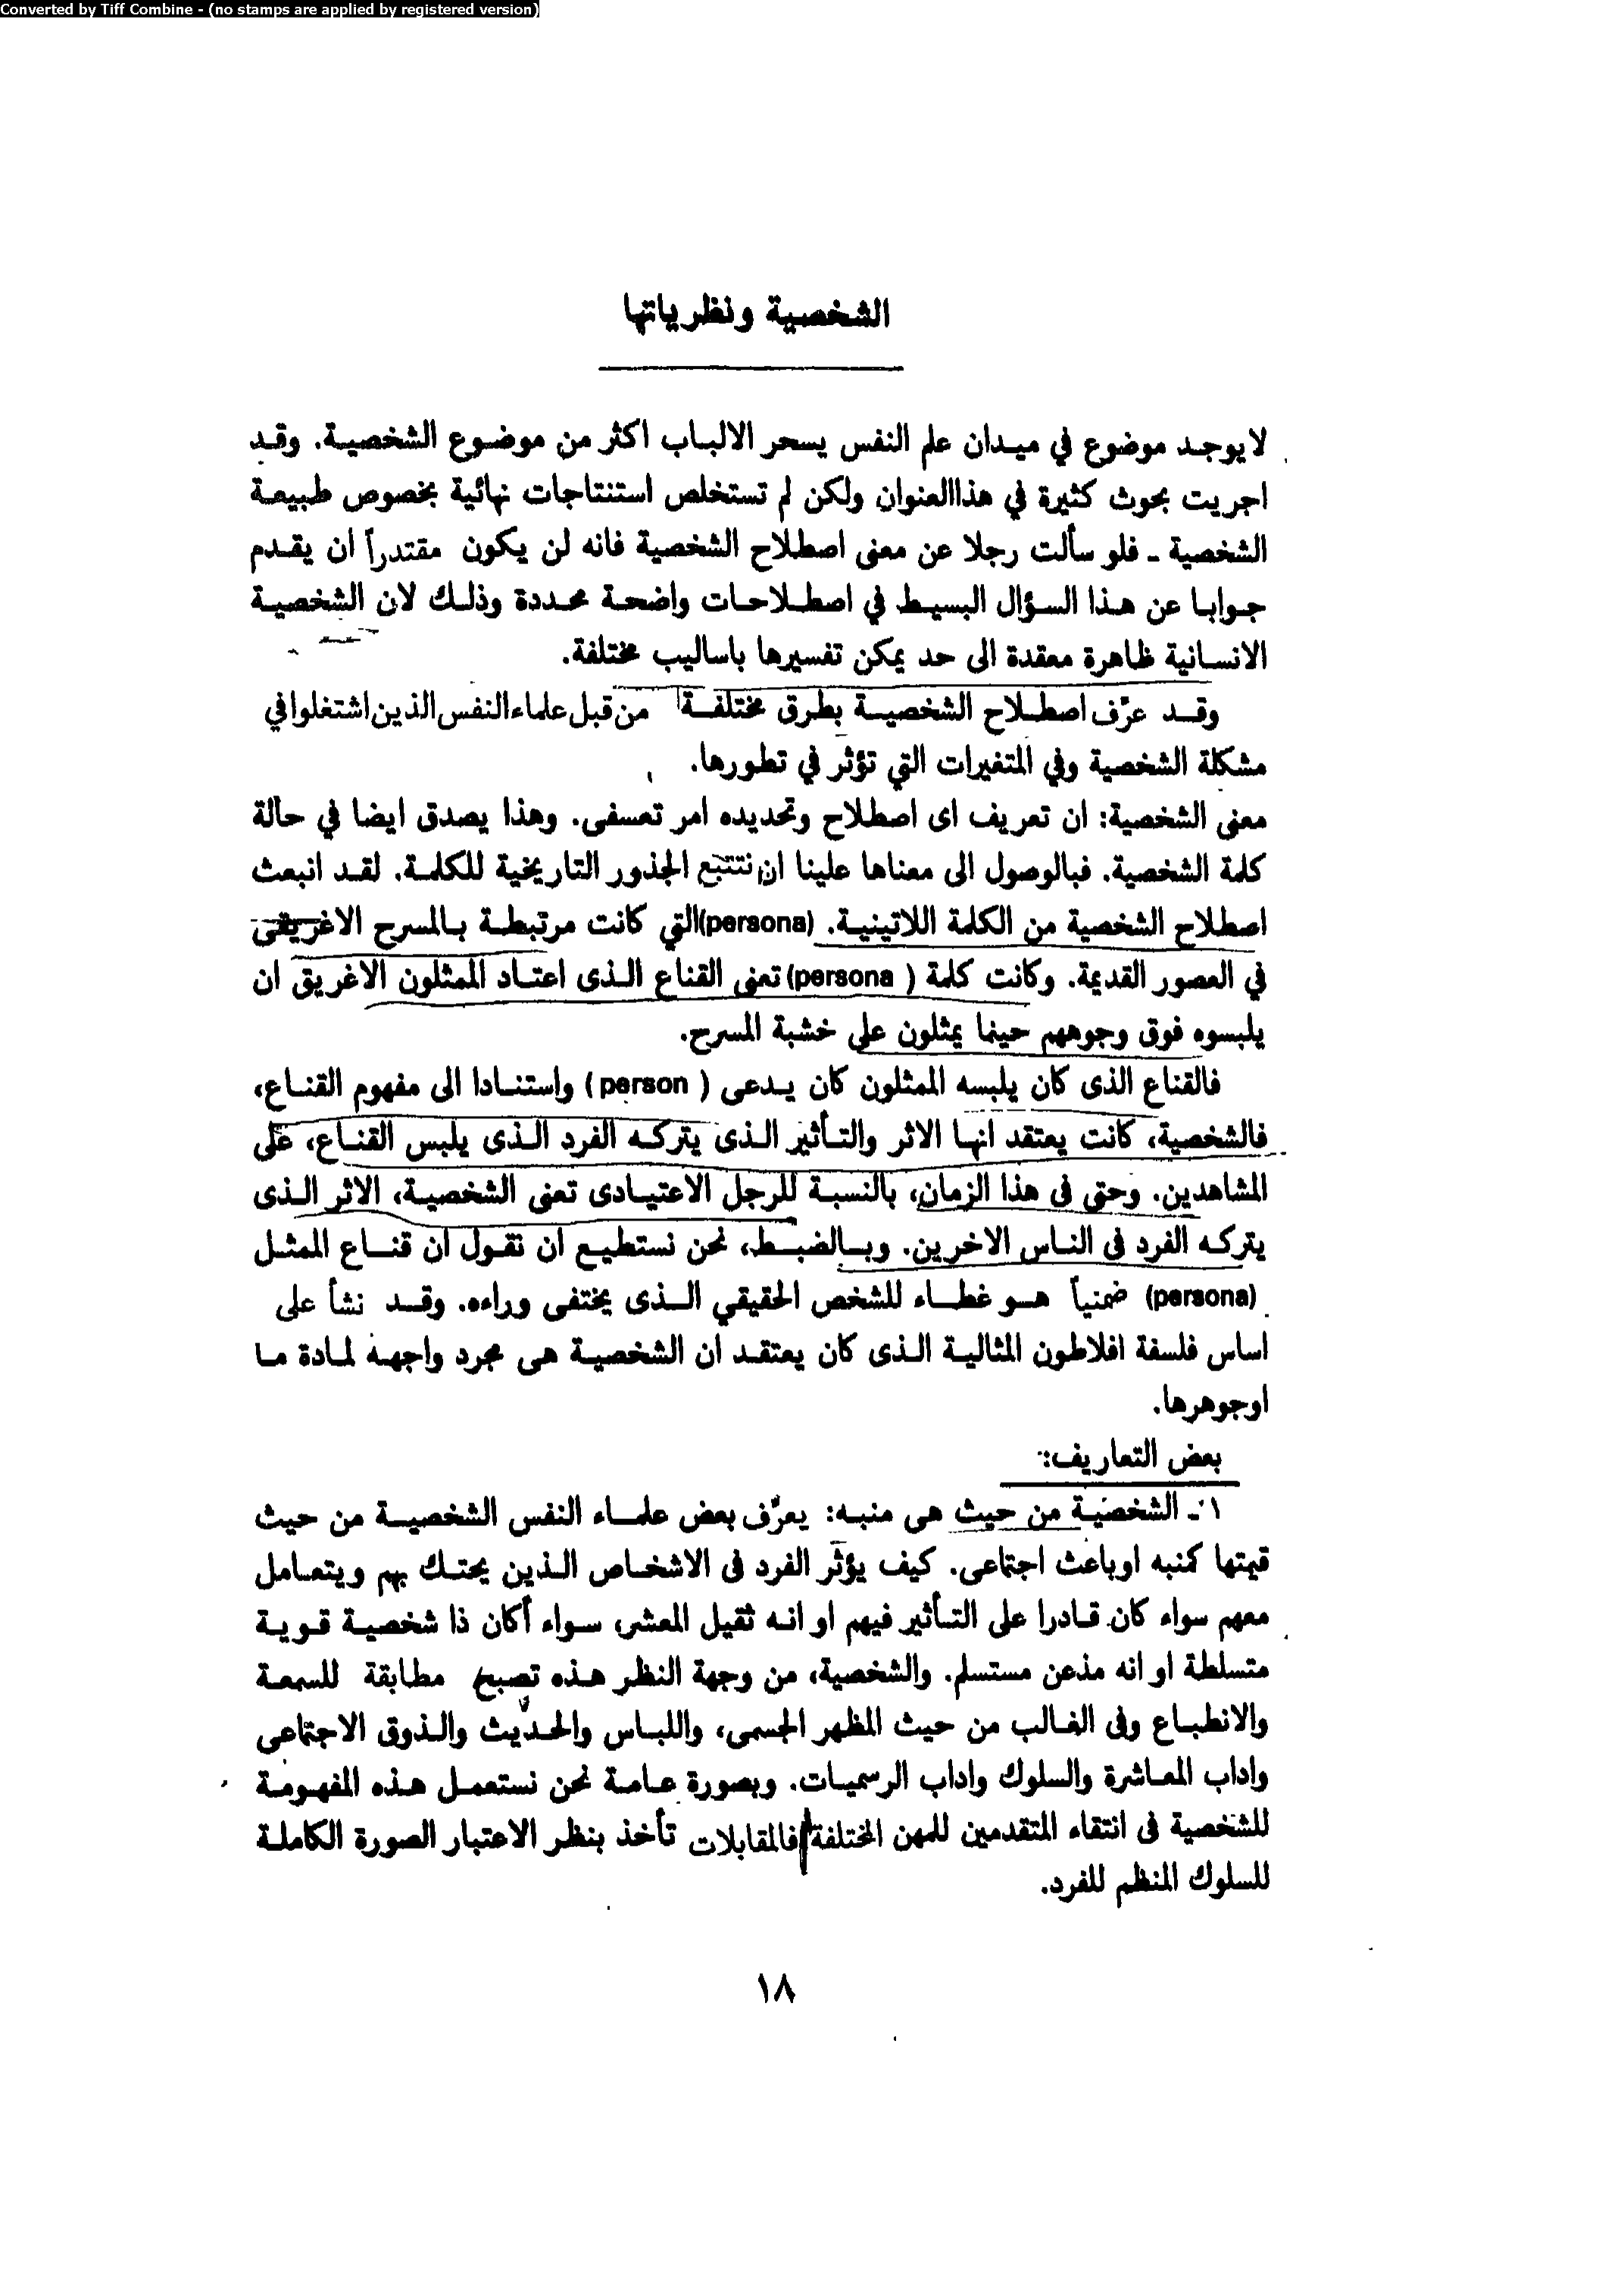 Converted by Tiff Combine - (no stamps are applied by registered version)
الشخصية ونظرياتها
لايوجد موضوع في ميدان علم النفس يسحر الالباب اكثر من موضوع الشخصية. وقد
اجريت بحوث كثيرة في هذاالعنوان ولكن لم تستخلص استنتاجات نهائية بخصوص طبيعة
الشخصية ـ فلو سألت رجلا عن معنى اصطلاح الشخصية فانه لن يكون مقتدراً ان يقدم
جوابا عن هذا السؤال البسيط في اصطلاحات واضحة محددة وذلك لان الشخصية
الانسانية ظاهرة معقدة الى حد يمكن تفسيرها باساليب مختلفة.
وقد عرّف اصطلاح الشخصية بطرق مختلفة من قبل علماء النفس الذين اشتغلوا في
مشكلة الشخصية وفي المتغيرات التي تؤثر في تطورها.
معنى الشخصية: ان تعريف اى اصطلاح وتحديده امر تعسفى. وهذا يصدق ايضا في حالة
كلمة الشخصية. فبالوصول الى معناها علينا ان نتتبع الجذور التاريخية للكلمة. لقد انبعث
اصطلاح الشخصية من الكلمة اللاتينية. (persona)التي كانت مرتبطة بالمسرح الاغريقى
في العصور القديمة. وكانت كلمة ( persona) تعنى القناع الذى اعتاد الممثلون الاغريق ان
يلبسوه فوق وجوههم حينما يمثلون على خشبة المسرح.
فالقناع الذى كان يلبسه الممثلون كان يدعى ( person ) واستنادا الى مفهوم القناع،
فالشخصية، كانت يعتقد انها الاثر والتأثير الذى يتركه الفرد الذى يلبس القناع، على
المشاهدين. وحتى فى هذا الزمان، بالنسبة للرجل الاعتيادى تعنى الشخصية، الاثر الذى
يتركه الفرد فى الناس الاخرين. وبالضبط، نحن نستطيع ان نقول ان قناع الممثل
(persona) ضمنياً هو غطاء للشخص الحقيقي الذى يختفى وراءه. وقد نشأ على
اساس فلسفة افلاطون المثالية الذى كان يعتقد ان الشخصية هى مجرد واجهة لمادة ما
اوجوهرها.
بعض التعاريف:
١ـ الشخصية من حيث هى منبه: يعرّف بعض علماء النفس الشخصية من حيث
قيمتها كمنبه اوباعث اجتماعى. كيف يؤثر الفرد فى الاشخاص الذين يحتك بهم ويتعامل
معهم سواء كان قادرا على التأثير فيهم او انه ثقيل المعشر، سواء أكان ذا شخصية قوية
متسلطة او انه مذعن مستسلم. والشخصية، من وجهة النظر هذه تصبح مطابقة للسمعة
والانطباع وفى الغالب من حيث المظهر الجسمى، واللباس والحديث والذوق الاجتماعى
واداب المعاشرة والسلوك واداب الرسميات. وبصورة عامة نحن نستعمل هذه المفهومة
للشخصية فى انتقاء المتقدمين للمهن المختلفة فالمقابلات تأخذ بنظر الاعتبار الصورة الكاملة
للسلوك المنظم للفرد.
١٨